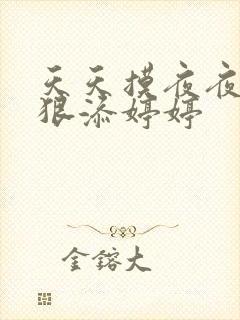 天天摸夜夜
狠添婷婷
金鎔大